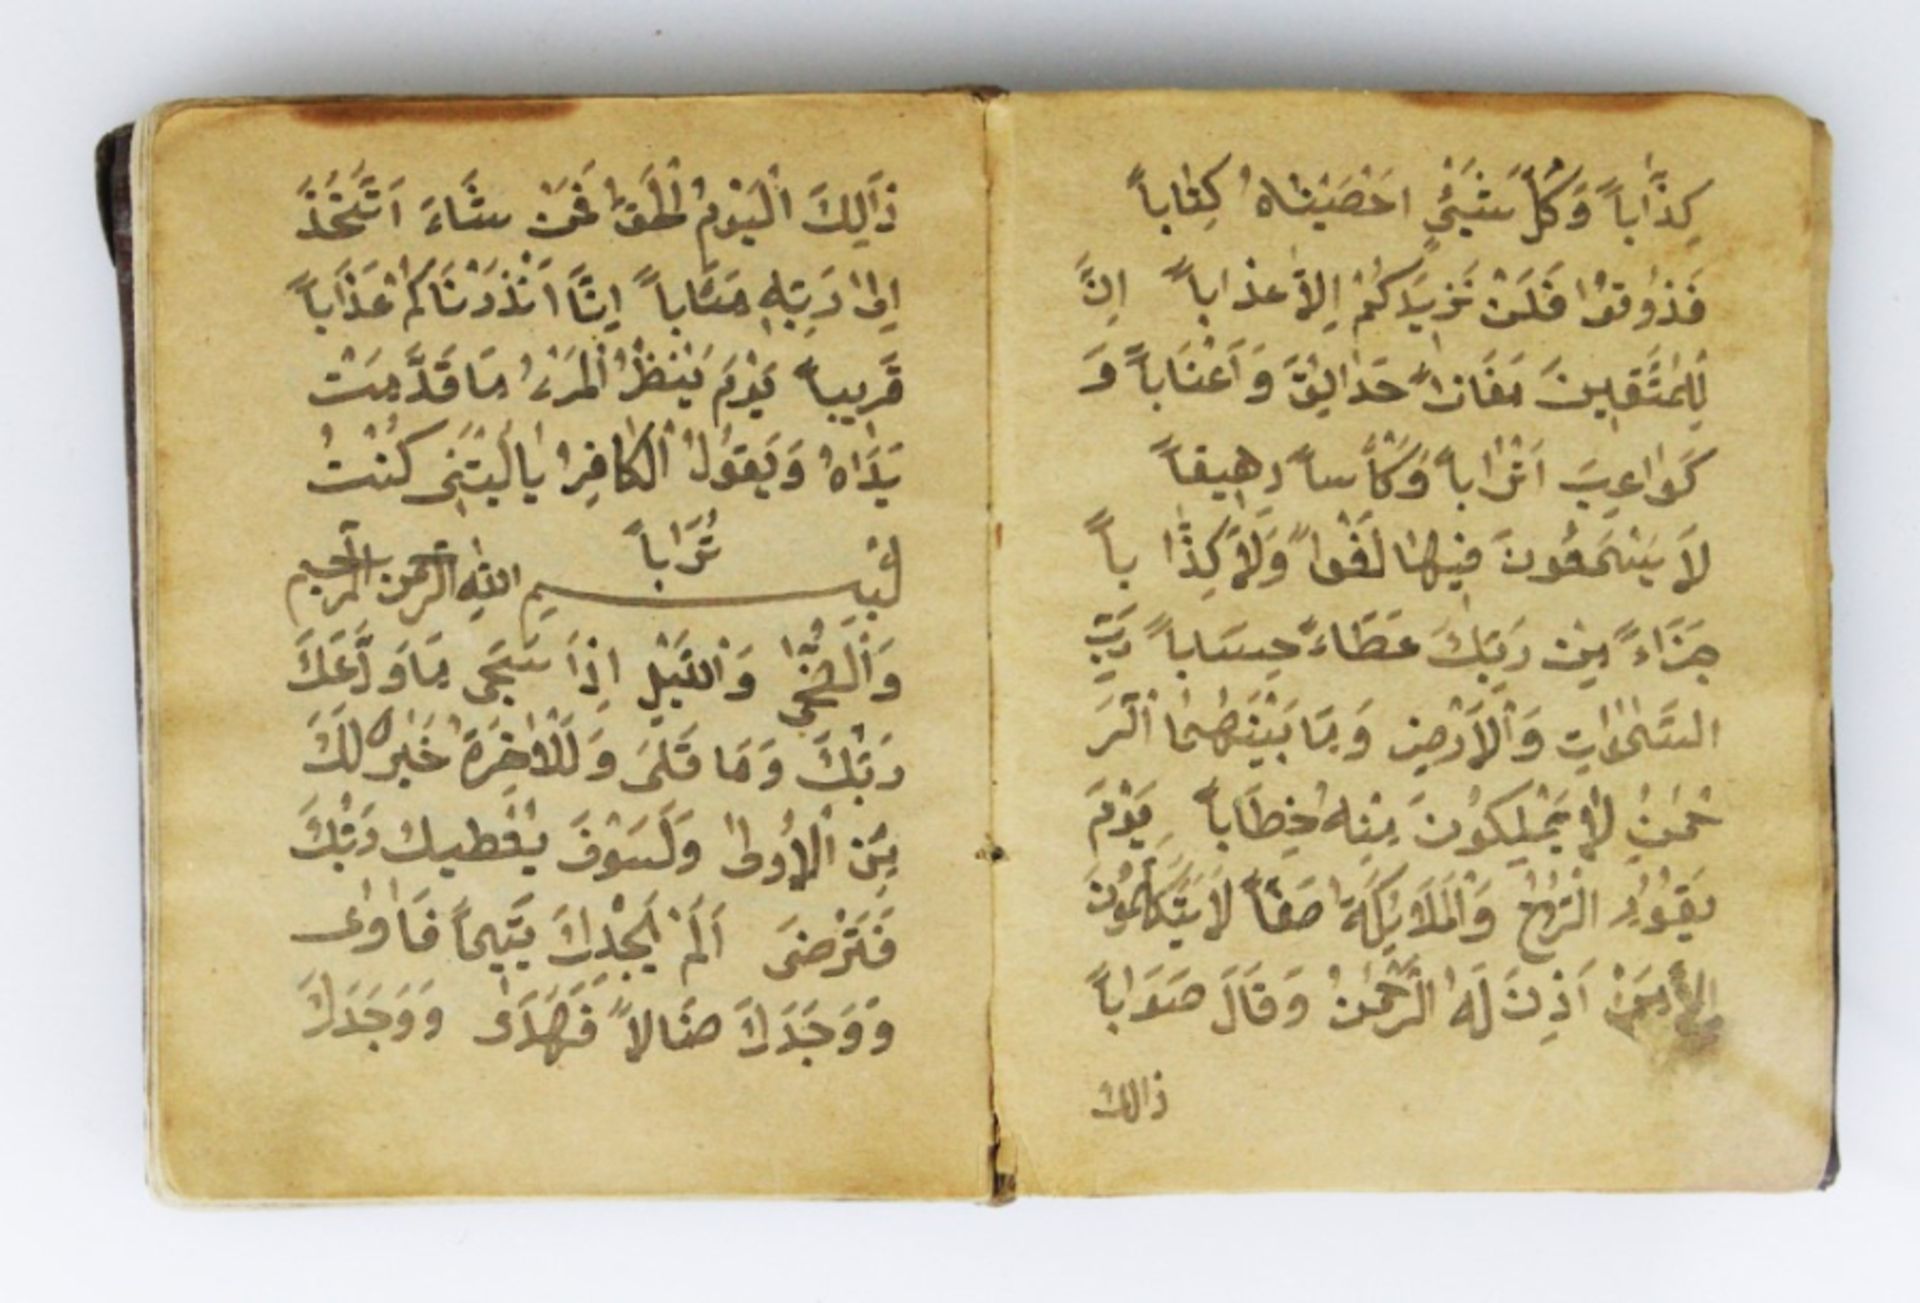 كِذَّاباً وَكُلَّ شَيْئٍ احْصَيْنٰاهُ كِتٰاباً
فَذُوقُوا فَلَنْ نَزِيدَكُمْ اِلاّٰ عذاباً اِنَّ
لِلْمُتَّقِينَ مَفَازاً حَدٰائِقَ وَاَعْنَاباً وَ
كَوٰاعِبَ اَتْرٰاباً وَكَأْساً دِهٖيقاً
لاَ يَسْمَعُونَ فِيهٰا لَغْواً وَلاَ كِذّٰاباً
جَزَاءً مِنْ رَبِّكَ عَطَاءً حِسَاباً رَبِّ
السَّمٰوٰاتِ وَالْاَرْضِ وَمَا بَيْنَهُمٰا الْرَّ
حْمٰنِ لاٰ يَمْلِكُونَ مِنْهُ خِطَاباً يَوْمَ
يَقُوْمُ الْرُّوْحُ وَالْمَلَائِكَةُ صَفّاً لاَ يَتَكَلَّمُونَ
اِلاَّ مَنْ اَذِنَ لَهُ الْرَّحْمٰنُ وَقَالَ صَوَاباً
ذالك
ذَالِكَ الْيَوْمُ الْحَقُّ فَمَنْ شَّاءَ اتَّخَذَ
اِلىٰ رَبِّهٖ مَئَاباً اِنَّا اَنْذَرْنَاكُمْ عَذَاباً
قَرِيباً يَوْمَ يَنْظُرُ الْمَرْءُ مَا قَدَّمَتْ
يَدَاهُ وَيَقُولُ الْكَافِرُ يَا لَيْتَنِى كُنْتُ
تُرَاباً
بِسْمِ اللهِ الرَّحْمٰنِ الرَّحِيمِ
وَالْضُّحٰى وَاللَّيْلِ اِذَا سَجٰى مَا وَدَّعَكَ
رَبُّكَ وَمَا قَلىَ وَلَلْاٰخِرَةُ خَيْرٌ لَكَ
مِنَ الْاُولىٰ وَلَسَوْفَ يُعْطيكَ رَبُّكَ
فَتَرْضىَ اَلَمْ يَجِدْكَ يَتِيماً فَاٰوٰى
وَوَجَدَكَ ضَالاً فَهَدَى وَوَجَدَكَ